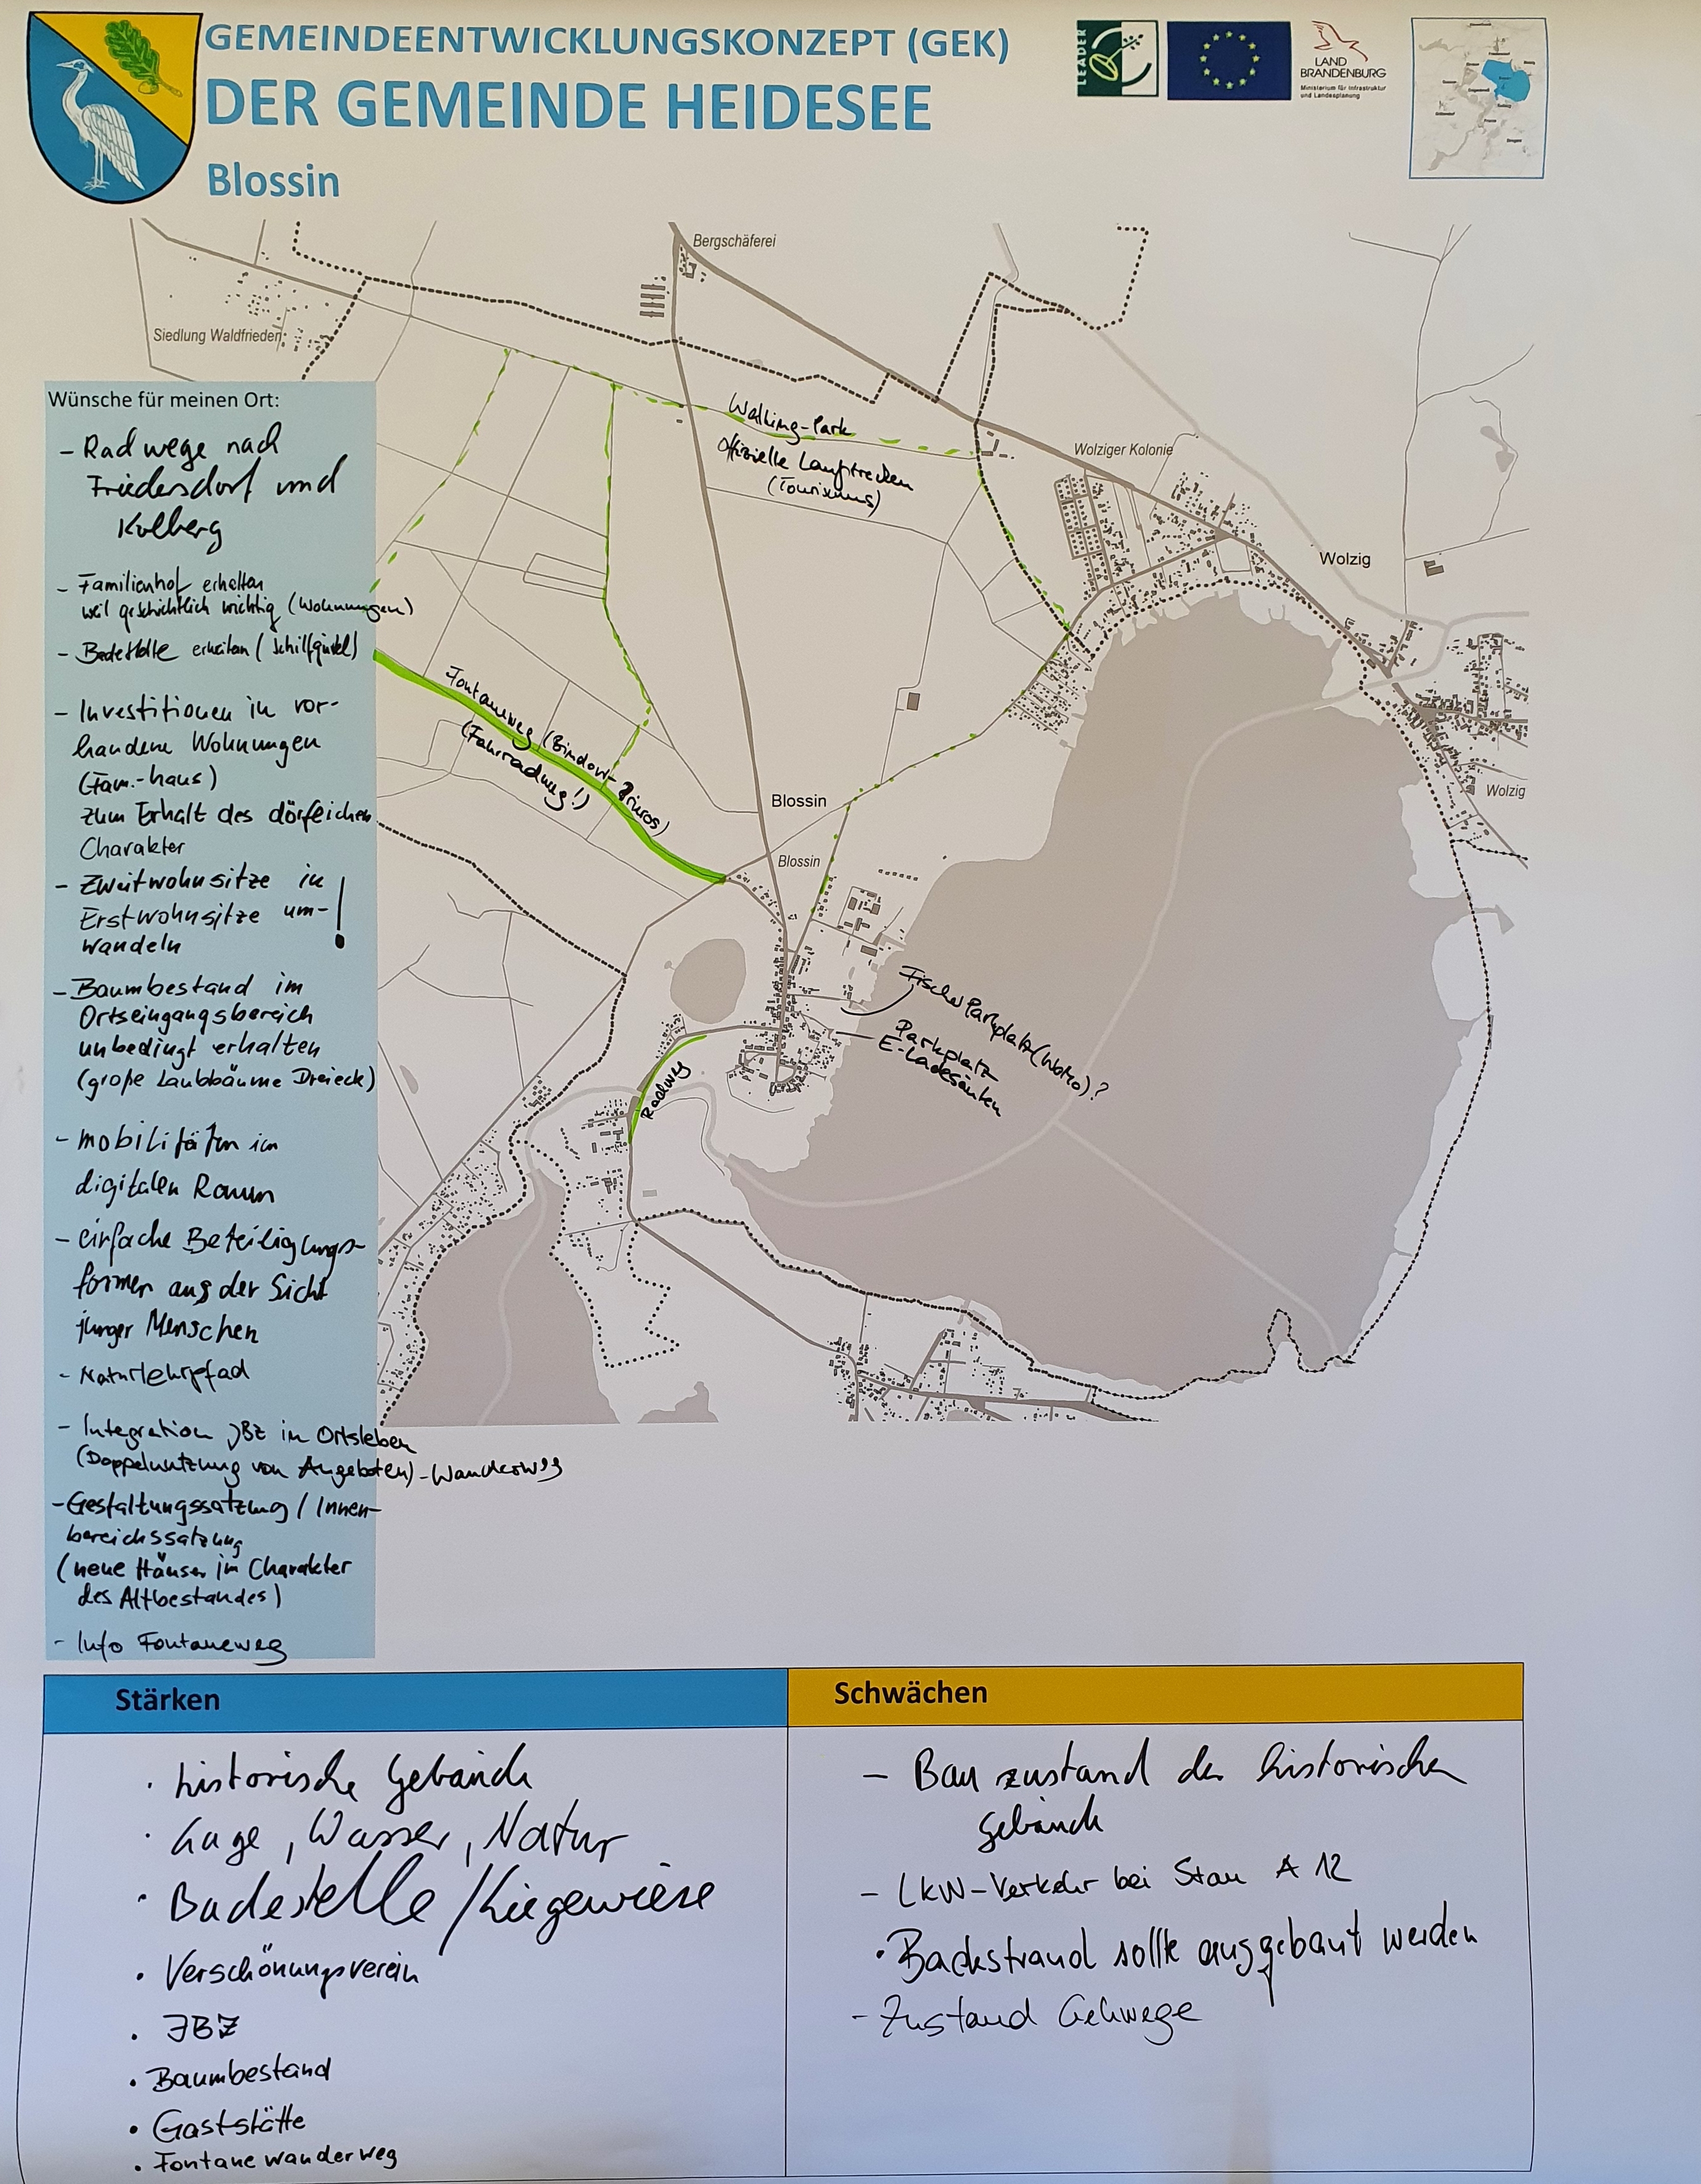 GEMEINDEENTWICKLUNGSKONZEPT (GEK)
DER GEMEINDE HEIDESEE
Blossin
LEADER
LAND
BRANDENBURG
Ministerium für Infrastruktur
und Landesplanung
Bergschäferei
Siedlung Waldfrieden
Walking-Park
offizielle Laufstrecken
(Tourismus)
Wolziger Kolonie
Wolzig
Wolzig
Fontaneweg (Bindow-
(Fahrradweg!)
Blossin
Blossin
Fischer Parkplatz
Parkplatz
E-Ladesäulen
Radweg
Wünsche für meinen Ort:
- Radwege nach
Friedersdorf und
Kolberg
- Familienhof erhalten
weil geschichtlich wichtig (Wohnungen)
- Badestelle erhalten (Schilfgürtel)
- Investitionen in vor-
handene Wohnungen
(Fam.-haus)
zum Erhalt des dörflichen
Charakter
- Zweitwohnsitze in
Erstwohnsitze um- !
wandeln
- Baumbestand im
Ortseingangsbereich
unbedingt erhalten
(große Laubbäume Dreieck)
- mobilitäten im
digitalen Raum
- einfache Beteiligungs-
formen aus der Sicht
junger Menschen
- Naturlehrpfad
- Integration JBZ im Ortsleben
(Doppelnutzung von Angeboten) - Wanderweg
- Gestaltungssatzung / Innen-
bereichssatzung
(neue Häuser im Charakter
des Altbestandes)
- Info Fontaneweg
Stärken
· historische Gebäude
· Lage, Wasser, Natur
· Badestelle / Liegewiese
· Verschönungsverein
· JBZ
· Baumbestand
· Gaststätte
· Fontanewanderweg
Schwächen
- Bauzustand der historischen
Gebäude
- LKW-Verkehr bei Stau A 12
· Badestrand sollte ausgebaut werden
- Zustand Gehwege